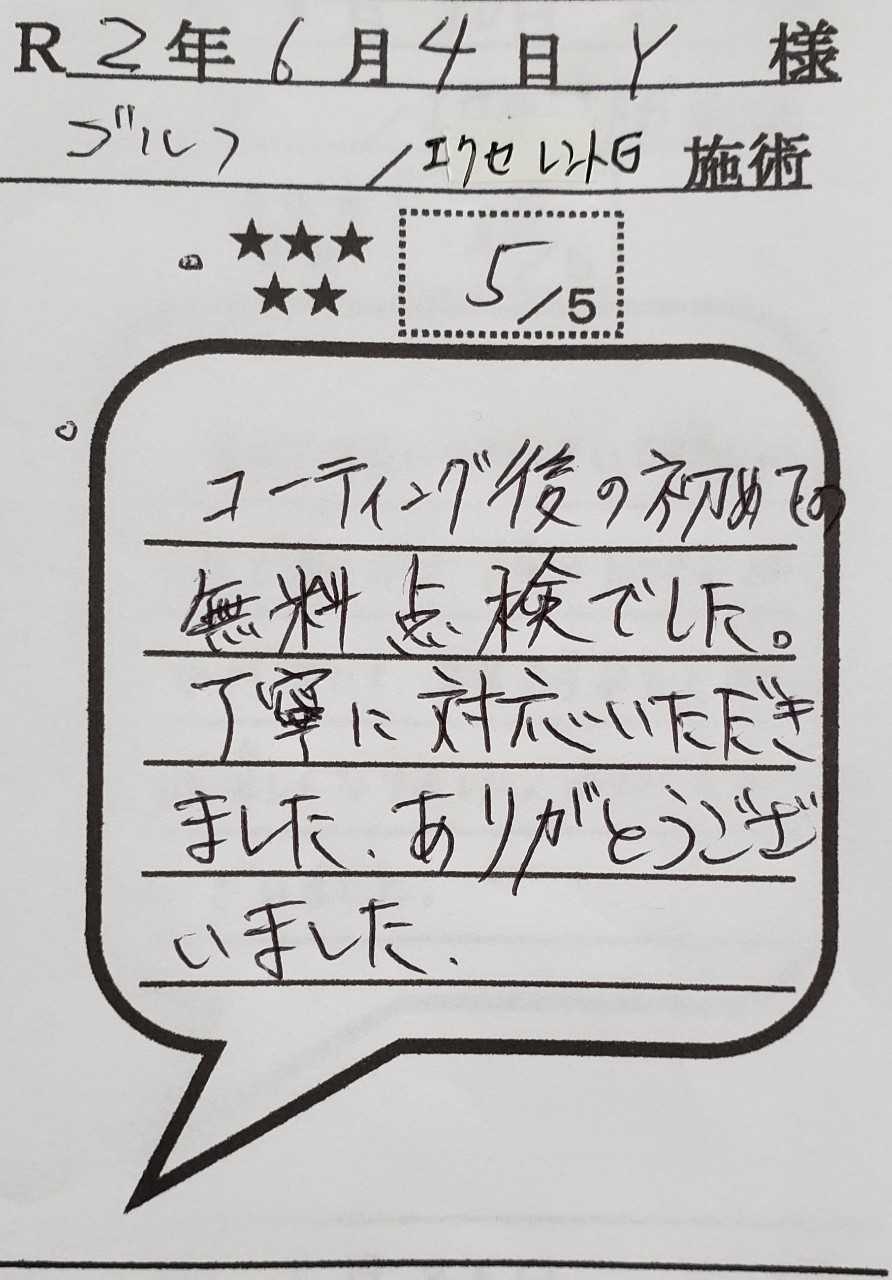 R2年6月4日 Y 様
ゴルフ / エクセレントG 施術
★★★
★★
5/5
コーティング後の初めての
無料点検でした。
丁寧に対応いただき
ました。ありがとうござ
いました.